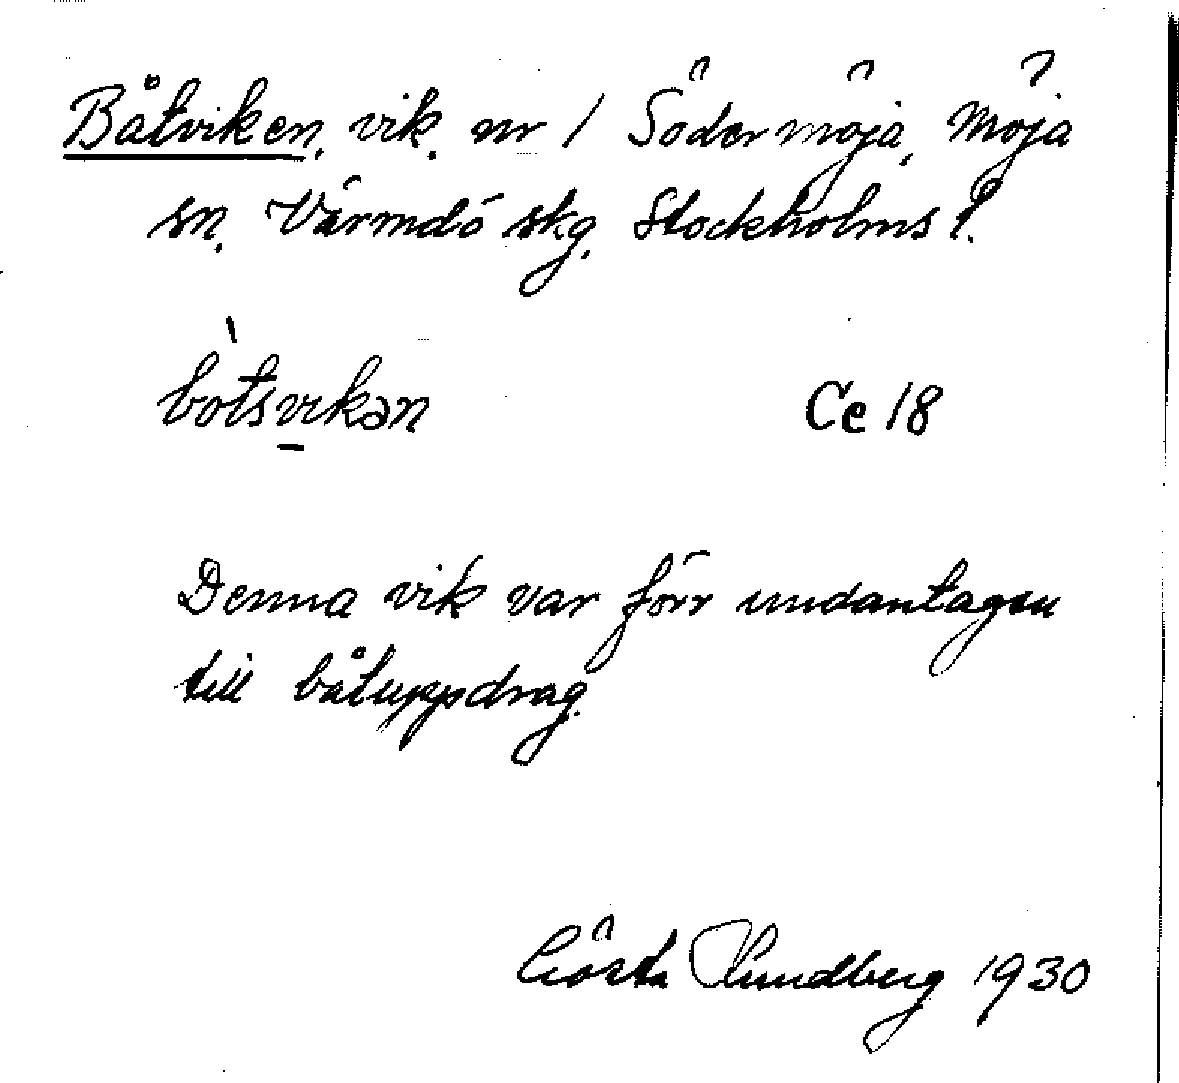 Båtviken, vik. nr 1 Södermöja, Möja
sn, Värmdö skg, Stockholms l.
bòtsvikən Ce 18
Denna vik var förr undantagen
till båtuppdrag.
Gösta Lundberg 1930